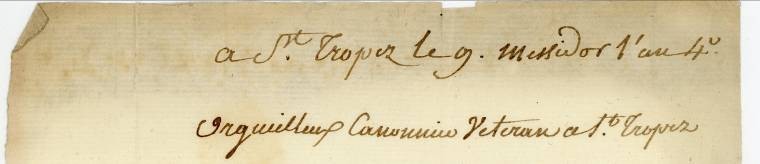 a St. Tropez le 9. messidor l'an 4e.
Orguilleux Canonnier Veteran a St. Tropez